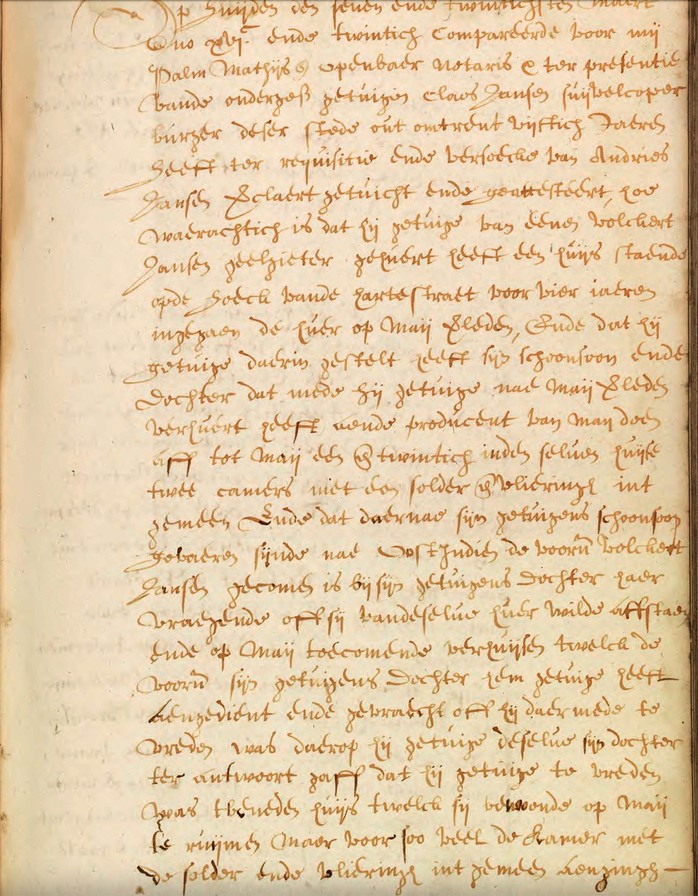 Op huijden den seven ende twintichsten Maert
Ano xvjc ende twintich Compareerde voor mij
Palm Mathijss openbaer notaris & ter presentie
vande ondergess getuigen Claes Jansen suijvelcoper
burger deser stede out omtrent vijftich Jaeren
heeft ter requisitie ende versoecke van Andries
Jansen Sclaert getuicht ende geattesteert, hoe
waerachtich is dat hij getuige van eenen Volckert
Jansen geelgieter gehuert heeft een huijs staende
opde hoeck vande hartestraet voor vier iaeren
ingegaen de huer op Maij xleden, Ende dat hij
getuige daerin gestelt heeft sijn schoonsoon ende
dochter dat mede hij getuige nae Maij xleden
verhuert heeft aende producent van Maij doen
aff tot Maij een & twintich inden selven huijse
twee camers met een solder & vlieringh int
gemeen Ende dat daernae sijn getuigens schoonsoon
gevaeren sijnde nae OostIndien de voorn Volckert
Jansen gecomen is bij sijn getuigens dochter haer
vraegende off sij vandeselve huer wilde affstaen
ende op Maij toecomende verhuijsen twelck de
voorn sijn getuigens dochter hem getuige heeft
aengedient ende gevraecht off hij daermede te
vreden was daerop hij getuige deselve sijn dochter
ter antwoort gaff dat hij getuige te vreden
was tbeneden huijs twelck sij bewoonde op Maij
te ruijmen Maer voor soo veel de Kamer met
de solder ende vlieringh int gemeen aenging